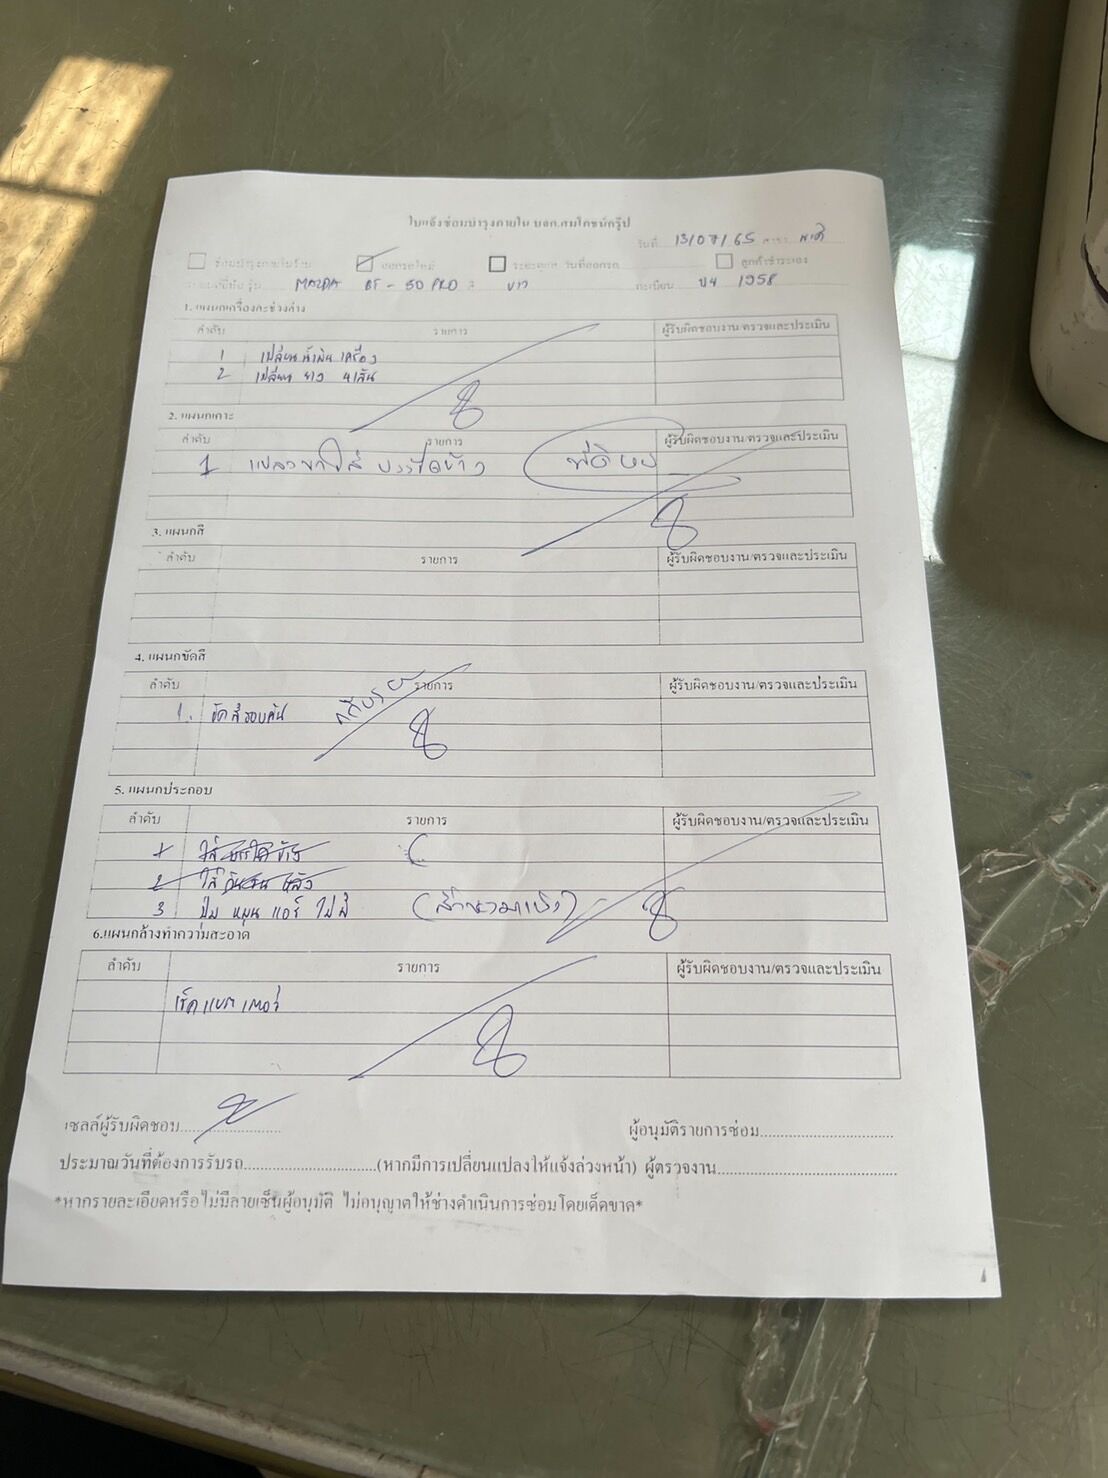 ใบแจ้งซ่อมบำรุงภายใน บจก.สมโภชน์กรุ๊ป
วันที่ 13/07/65 สาขา
ซ่อมบำรุงภายในร้าน ออกรถใหม่ วันที่ออกรถ ลูกค้าชำระเอง
รุ่น MAZDA BT-50 PRO สี ขาว ทะเบียน 1958
1. แผนกเครื่องและช่วงล่าง
ลำดับ รายการ ผู้รับผิดชอบงาน/ตรวจและประเมิน
1 เปลี่ยนน้ำมันเครื่อง
2 เปลี่ยน ยาง 4 เส้น
2. แผนกเคาะ
ลำดับ รายการ ผู้รับผิดชอบงาน/ตรวจและประเมิน
1
3. แผนกสี
ลำดับ รายการ ผู้รับผิดชอบงาน/ตรวจและประเมิน
4. แผนกขัดสี
ลำดับ รายการ ผู้รับผิดชอบงาน/ตรวจและประเมิน
1. ขัดสีรอบคัน
5. แผนกประกอบ
ลำดับ รายการ ผู้รับผิดชอบงาน/ตรวจและประเมิน
1 ใส่บรรไดข้าง
2 ใส่กันชนหลัง
3 ปุ่ม หมุน แอร์ ไม่มี
6.แผนกล้างทำความสะอาด
ลำดับ รายการ ผู้รับผิดชอบงาน/ตรวจและประเมิน
เช็คแบตเตอรี่
เซลล์ผู้รับผิดชอบ ผู้อนุมัติรายการซ่อม
ประมาณวันที่ต้องการรับรถ (หากมีการเปลี่ยนแปลงให้แจ้งล่วงหน้า) ผู้ตรวจงาน
*หากรายละเอียดหรือไม่มีลายเซ็นผู้อนุมัติ ไม่อนุญาตให้ช่างดำเนินการซ่อมโดยเด็ดขาด*